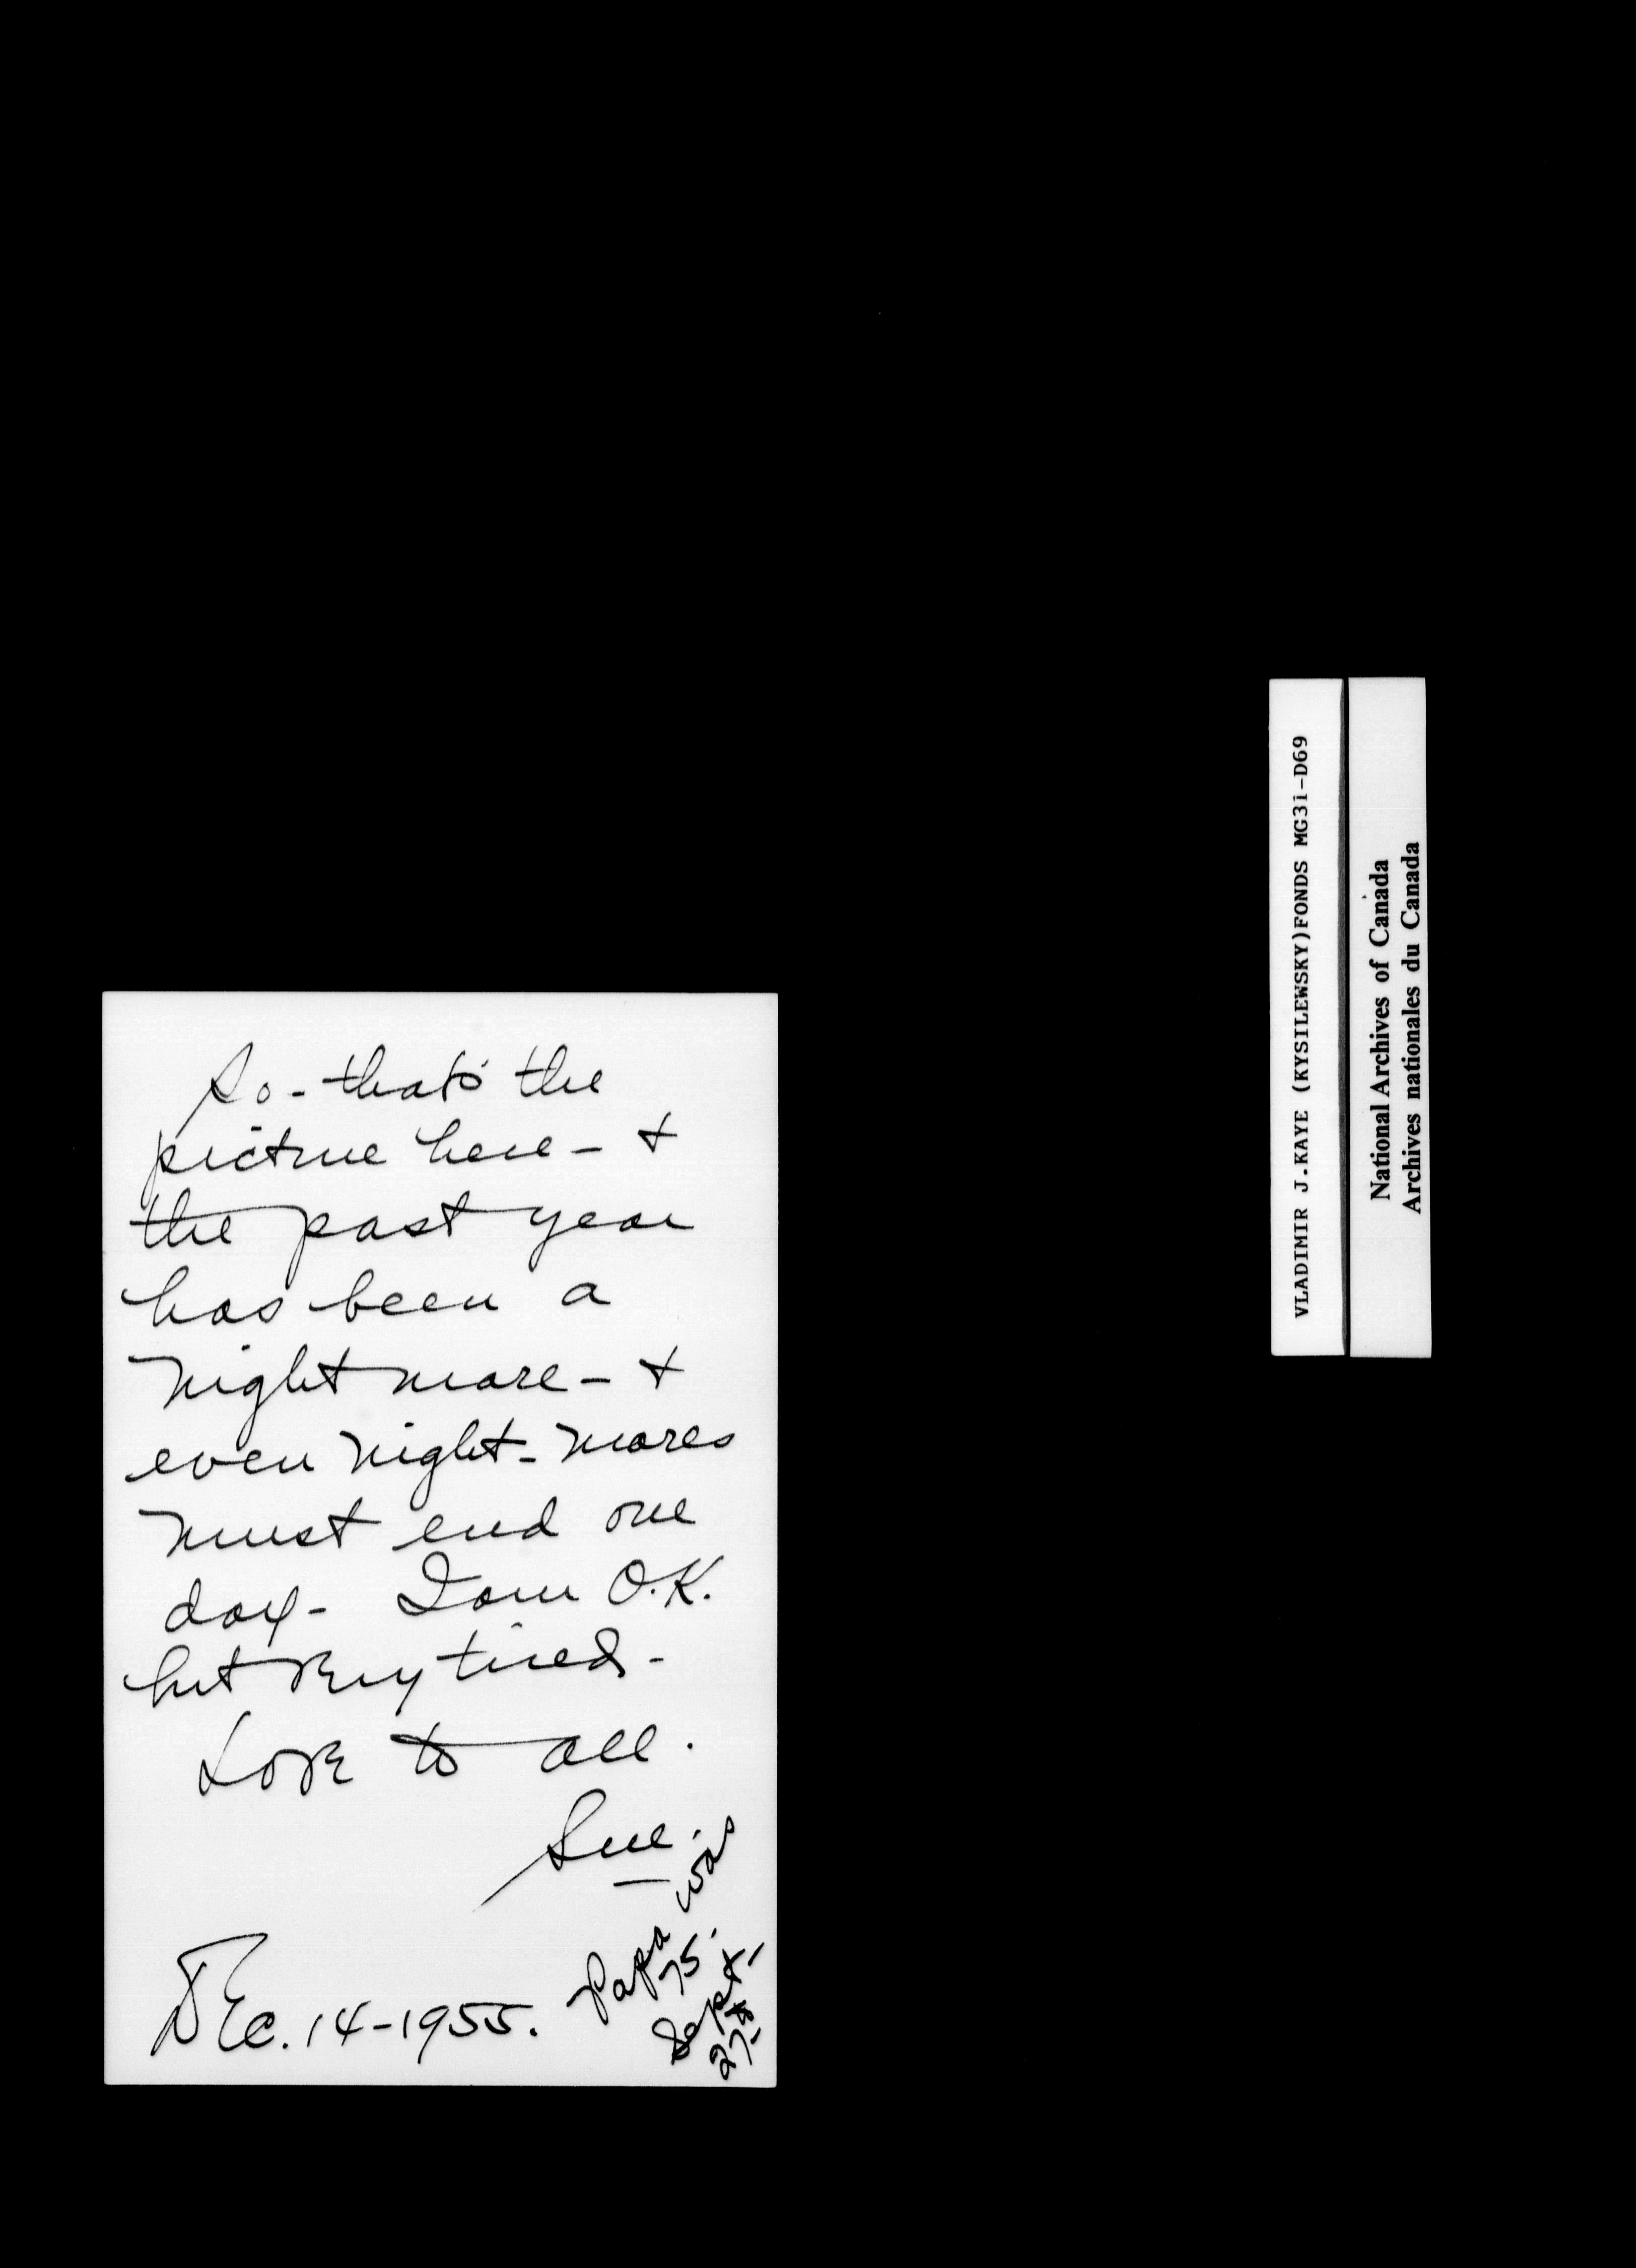 So - that's the
picture here - +
the past year
has been a
night mare - +
even night - mares
must end one
day - I am O.K.
but very tired -
Love to all.
Sue.
Dec. 14 - 1955.
Papa was
75.
Sept.
27th
VLADIMIR J.KAYE (KYSILEWSKY)FONDS MG31-D69
National Archives of Canada
Archives nationales du Canada